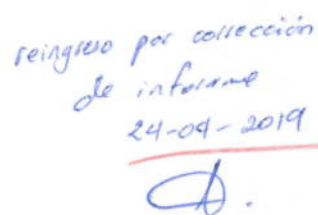 reingreso por corrección
de informe
24-04-2019